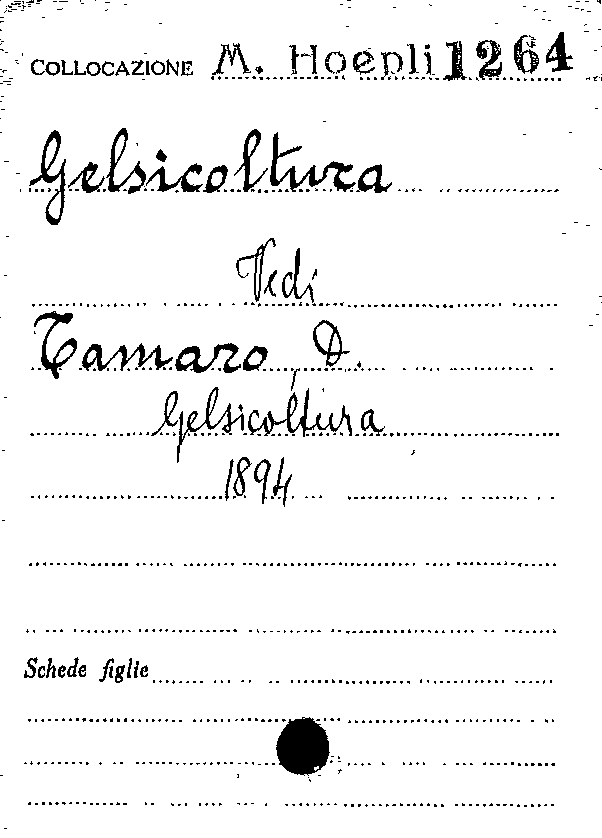 COLLOCAZIONE M. Hoepli 1264
Gelsicoltura
Vedi
Tamaro, D.
Gelsicoltura
1894
Schede figlie